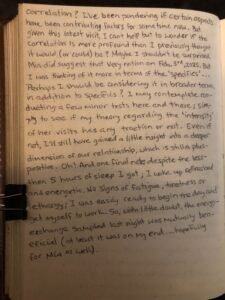 correlation? I've been pondering if certain aspects
have been contributing factors for sometime now. But
given this latest visit, I cant help but to wonder if the
correlation is more profound than I previously thought
it would (or could) be? Maybe I shouldn't be surprised.
Mia did suggest that very notion on Feb. 3rd, 2025. But
I was thinking of it more in terms of the "specifics"...
Perhaps I should be considering it in broader terms,
in addition to specifics? I may contemplate con-
ducting a few minor tests here and there, sim-
ply to see if my theory regarding the 'intensity'
of her visits has any traction or not. Even if
not, I'll still have gained a little height into a deeper
dimension of our relationship, which is still a plus-
positive. Oh! And one final note despite the less-
than 5 hours of sleep I got, I woke up refreshed
and energetic. No signs of fatigue, tiredness or
lethargy; I was easily ready to begin the day and
get myself to work. So, with little doubt, the energy-
exchange sampled last night was mutually ben-
eficial (at least it was on my end... hopefully
for Mia as well).